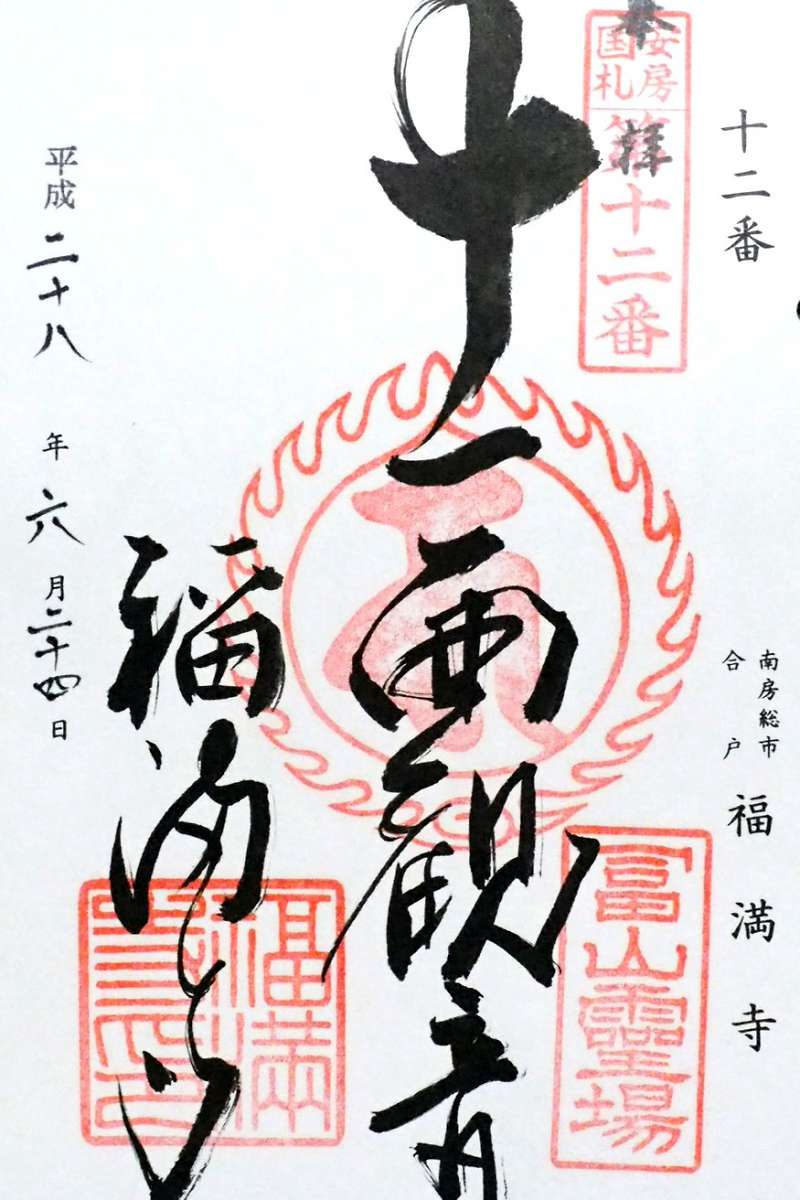 十二番
南房総市
合戸
福満寺
奉拝
安房
国札
第十二番
十一面觀音
冨山靈場
福満寺
福満
平成二十八年六月二十四日